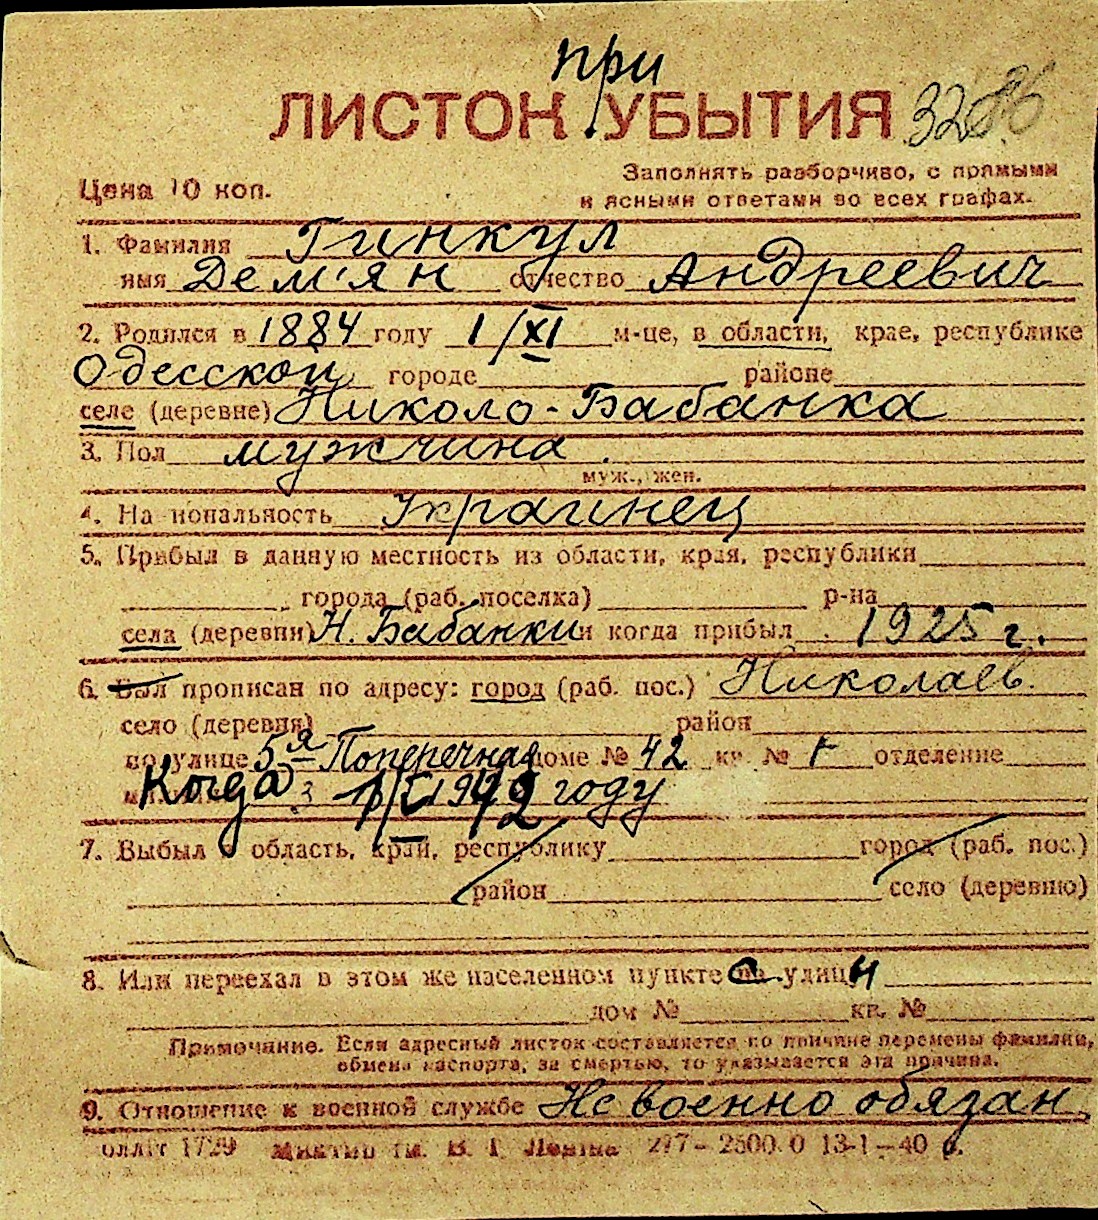 при
ЛИСТОК УБЫТИЯ
Цена 10 коп.
Заполнять разборчиво, с прямыми
и ясными ответами во всех графах.
1. Фамилия Гинкул
имя Дем'ян отчество Андреевич
2. Родился в 1884 году 1/XI м-це, в области, крае, республике
Одесской городе районе
селе (деревне) Николо-Бабанка
3. Пол мужчина
муж., жен.
4. Национальность Украинец
5. Прибыл в данную местность из области, края, республики
города (раб. поселка) р-на
села (деревни) Н. Бабанки и когда прибыл 1925 г.
6. Был прописан по адресу: город (раб. пос.) Николаев.
село (деревня) район
по улице 5-я Поперечная доме № 42 кв. № 1 отделение
Когда 1942 году
7. Выбыл в область, край, республику город (раб. пос.)
район село (деревню)
8. Или переехал в этом же населенном пункте с улицы
дом № кв. №
Примечание. Если адресный листок составляется по причине перемены фамилии,
обмена паспорта, за смертью, то указывается эта причина.
9. Отношение к военной службе Не военно обязан
1729 В. Леніна 277-2500.0 13-1-40